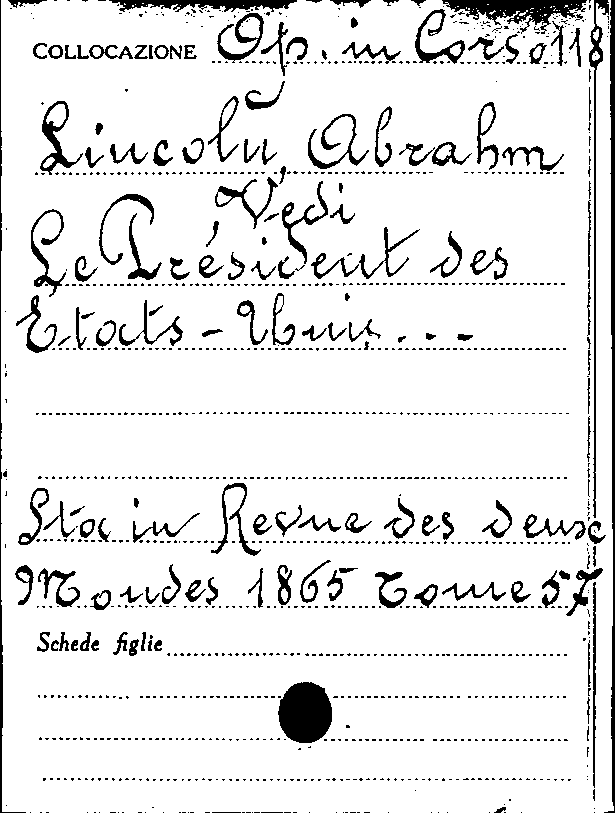 COLLOCAZIONE Op. in Corso 118
Lincoln, Abrahm
Vedi
Le Président des
États-Unis...
Sta in Revue des deux
Mondes 1865 Tome 57
Schede figlie